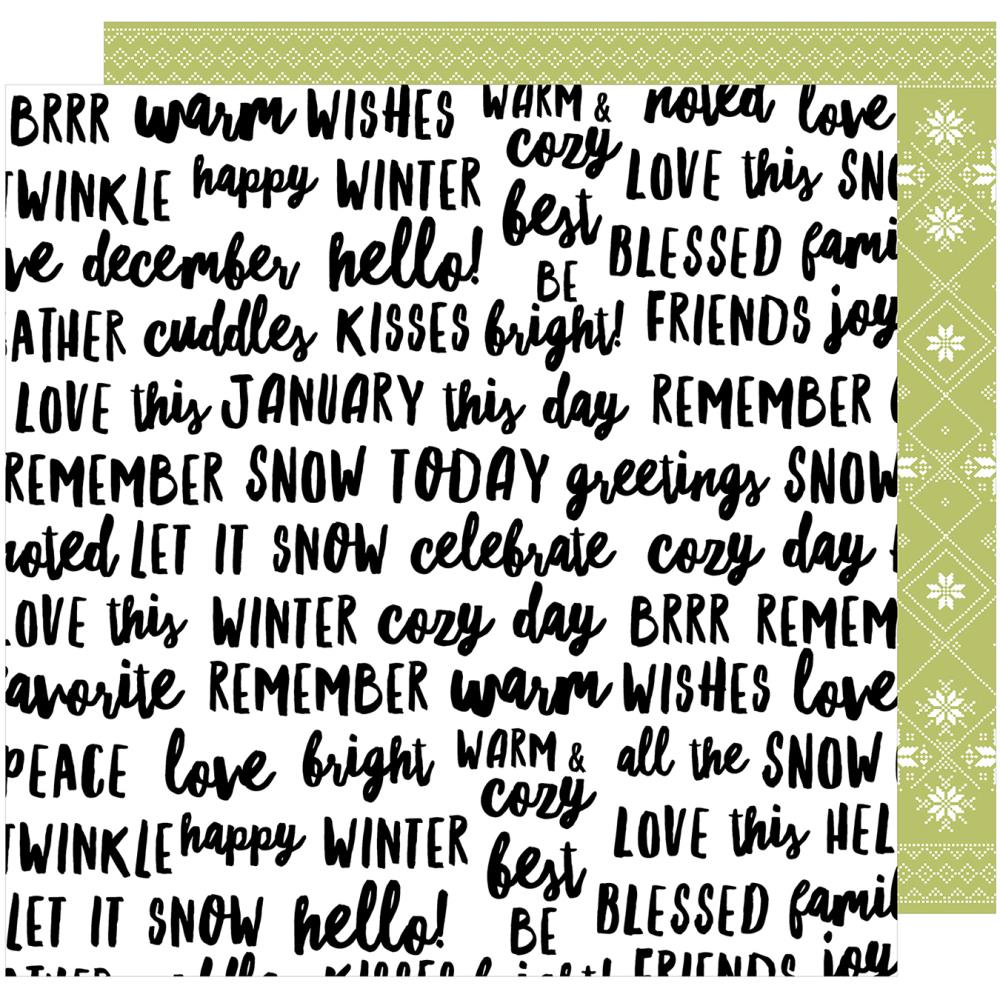 BRRR warm WISHES WARM & noted love
cozy
TWINKLE happy WINTER LOVE this SNO
best
ve december hello! BLESSED fami
BE
ATHER cuddles KISSES bright! FRIENDS joy
LOVE this JANUARY this day REMEMBER
REMEMBER SNOW TODAY greetings SNOW
noted LET IT SNOW celebrate cozy day
LOVE this WINTER cozy day BRRR REMEM
favorite REMEMBER warm WISHES love
PEACE love bright WARM & all the SNOW
cozy
TWINKLE happy WINTER LOVE this HEL
best
LET IT SNOW hello! BLESSED famil
BE
ATHER cuddles KISSES bright! FRIENDS joy